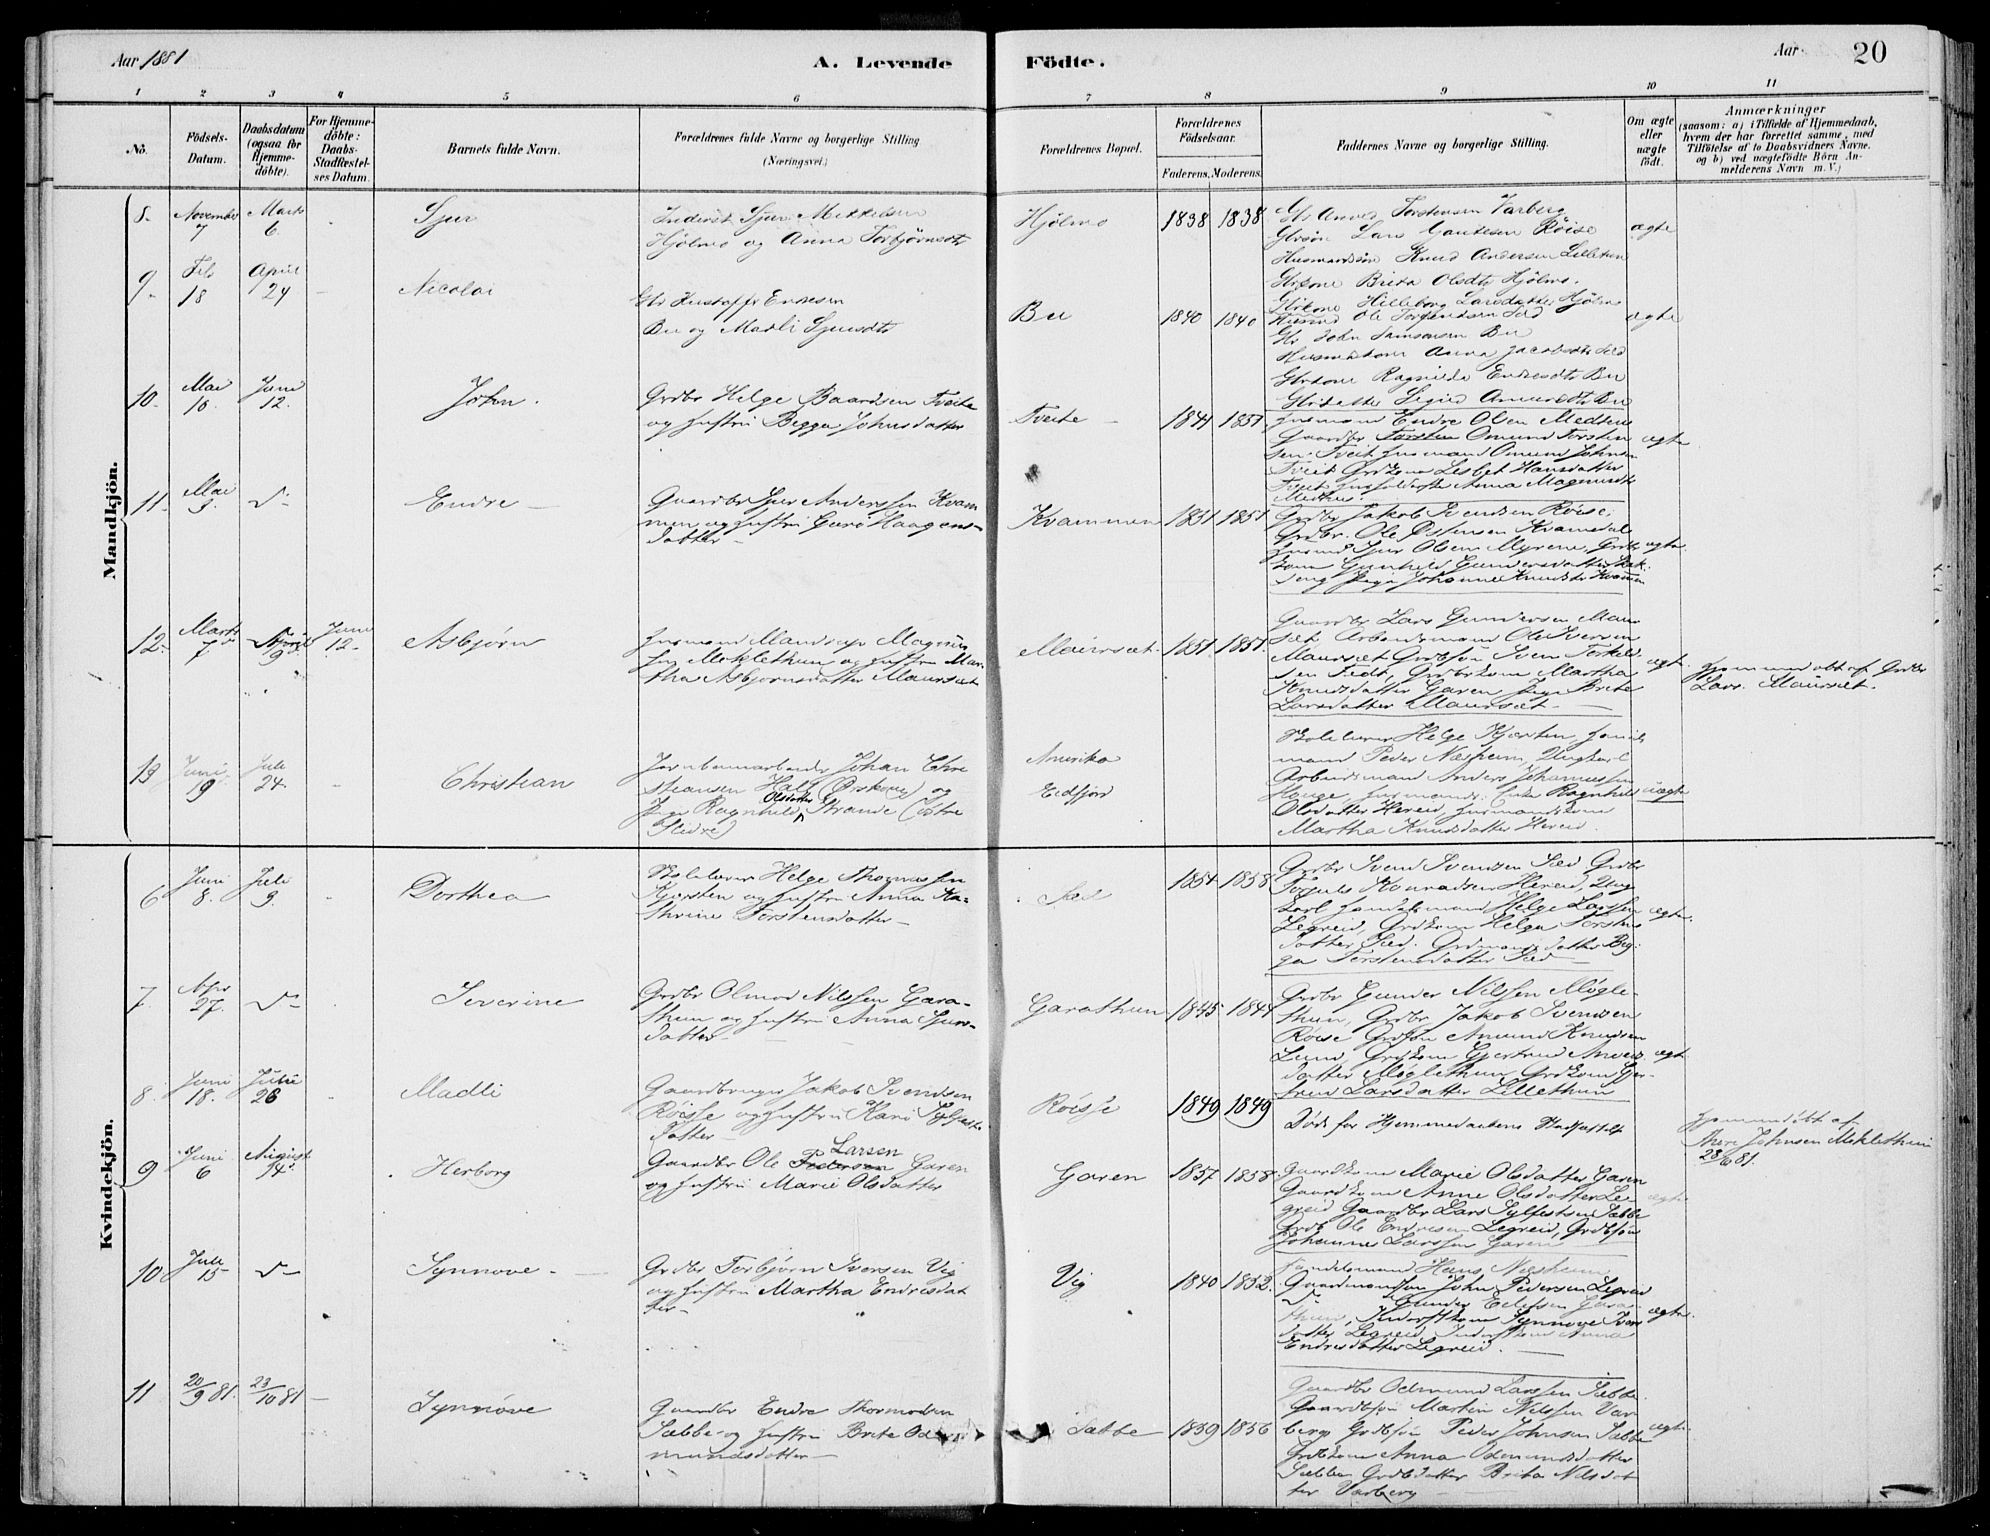 Aar 1881
A. Levende
Födte.
Aar
20
1 2 3 4 5 6 7 8 9 10 11
No.
Födsels-
Datum.
Daabsdatum
(ogsaa for
Hjemme-
döbte).
For Hjemme-
döbte:
Daabs-
Stadfæstel-
ses Datum.
Barnets fulde Navn.
Forældrenes fulde Navne og borgerlige Stilling
(Næringsvei.)
Forældrenes Bopæl.
Forældrenes
Födselsaar.
Faderens. Moderens.
Faddernes Navne og borgerlige Stilling.
Om ægte
eller
uægte
födt.
Anmærkninger
(saasom: a) i Tilfælde af Hjemmedaab,
hvem der har forrettet samme, med
Tilföielse af to Daabsvidners Navne.
og b) ved uægtefödte Börn An-
melderens Navn m. V.)
Mandkjön.
8 November 7 Marts 6. Sjur
Inderst Sjur Mikkelsen
Hjølmo og Anna Torbjørnsdtr
Hjølmo 1838 1838 ægte
Torstensen Varberg
Lars Gautesen Røise
Knud Andersen Lillethun
Brita Olsdtr Hjølmo.
9 Feb 18 April 24 Nicolai
Gbr Kristoffer Endresen
Bu og Madli Sjursdtr
Bu 1840 1840 ægte
Hilleborg Larsdatter Hjølmo
John Samsonsen Bu
Anna Jacobsdtr Sæd
Ragnilde Endresdtr Bu
Sigrid Bu
10. Mai 16 Juni 12. John.
Grdbr Helge Baardsen Tveite
og Hustru Begga Johnsdatter
Tveite 1841 1851 ægte
Husmand Endre Olsen Medhus
Gaardbr Torsten Omund Torsten
sen Tveit Husmand Omund Johnsen
Tveit Grdkone Lisbet Hansdatter
Tveit Anna Magnusdtr
Medhus.
11. Mai 3. D° Endre
Gaardbr Sjur Anderssen Kvam
men og Hustru Guro Haagens-
datter
Kvammen 1831 1851 ægte
Grdbr Jakob Svendsen Røise,
Grdbr. Ole Østensen Kvamsdal
Husmd Sjur Olsen Myrene, Grdbr
kone Gunhild Gundersdatter
Pige Johanne Knudsdtr Kvammen
12. Marts 7 April 9 Juni 12. Asbjørn
Husmand Mandrup Magnus
sen Møklethun og Hustru Mar
tha Asbjørnsdatter Maursæt
Maursæt. 1851. 1851. ægte
Gaardbr Lars Gundersen Maur
sæt Arbeidsmand Ole Iversen
Maursæt Grdbsøn Sven Torkeld
sen Grdbrkone Martha
Knudsdatter Garen Pige Brita
Larsdatter Maursæt
Hjemmedøbt af Grdbr
Lars Maursæt.
13 Juni 9 Juli 24. Christian
Jernbanearbeider Johan Chri
stiansen Hall (Ørskoug) og
Pige Ragnhild Olsdatter Strande (Østre
Slidre)
Amerika
Eidfjord
uægte
Skolelærer Helge Kjærsten, Handels
mand Peder Næsheim, Ungkarl
Arbeidsmand Anders Johannessen
Hauge, Husmands Enke Ragnhild
Olsdatter Hereid, Husmandskone
Martha Knudsdatter Hereid.
Kvindekjön.
6 Juni 8. Juli 9. Dorthea
Skolelærer Helge Thomassen
Kjærsten og Hustru Anna Ka-
thrine Torstensdatter
Sæd 1854 1858 ægte
Grdbr Svend Svendsen Sæd Grdbr
Torjuls Konradsen Hereid, Ung
karl Handelsmand Helge Larssen
Legreid, Grdkone Helga Torstens
datter Sæd. Grdmandsdatter Beg-
ga Torstensdatter Sæd
7 Apr 27. D° Severine
Grdbr Olmod Nilssen Gara-
thun og Hustru Anna Sjurs-
datter
Garathun 1845 1844 ægte
Grdbr Gunder Nilssen Møgle-
thun, Grdbr. Jakob Svendsen
Røise Grdsøn Amund Knudsen
Lund, Grdkone Gjertrud
datter Møglethun Grdkone Gjer-
trud Larsdatter Lillethun
8. Juni 18. Julii 26 Madli
Gaardbruger Jakob Svendsen
Røisse og Hustru Kari Sylfest
datter
Røisse 1849 1849
Død før Hjemmedaabens Stadfæstelse
Hjemmedøbt af
Johnsen Møklethun
23/6 81.
9 Juni 6 August 14. Herborg
Gaardbr Ole Pedersen Larsen Garen
og Hustru Marie Olsdatter
Garen 1857 1858 ægte
Gaardkone Marie Olsdatter Garen
Gaardkone Anne Olsdatter Le-
greid Gaardbr Lars Sylfestsen Sæbbe
Grdb Ole Endresen Legreid, Grdbsøn
Johannes Larssen Garen
10 Juli 15 D° Synnove
Grdbr Torbjørn Iversen Vig
og Hustru Martha Endresdat
ter
Vig 1840 1852. ægte
Handelsmand Hans Næsheim
Gaardmandssøn John Pedersen Legreid
D° Gunder Eilefsen Gara-
thun, Synnove Ivers
datter Legreid, Anna
Endresdatter Legreid.
11 20/9 81. 23/10 81 Synnøve
Gaardbr Endre Thormodsen
Sæbbe og Hustru Brite Od
mundsdatter
Sæbbe 1839 1856 ægte
Gaardbr Odmund Larssen Sæbbe
Gaardbsøn Martin Nilssen Var
berg Grdbsøn Peder Johnsen Sæbbe
Grdbkone Anna Odmundsdatter
Sæbbe Grdbdatter Brita Nilsdat
ter Varberg